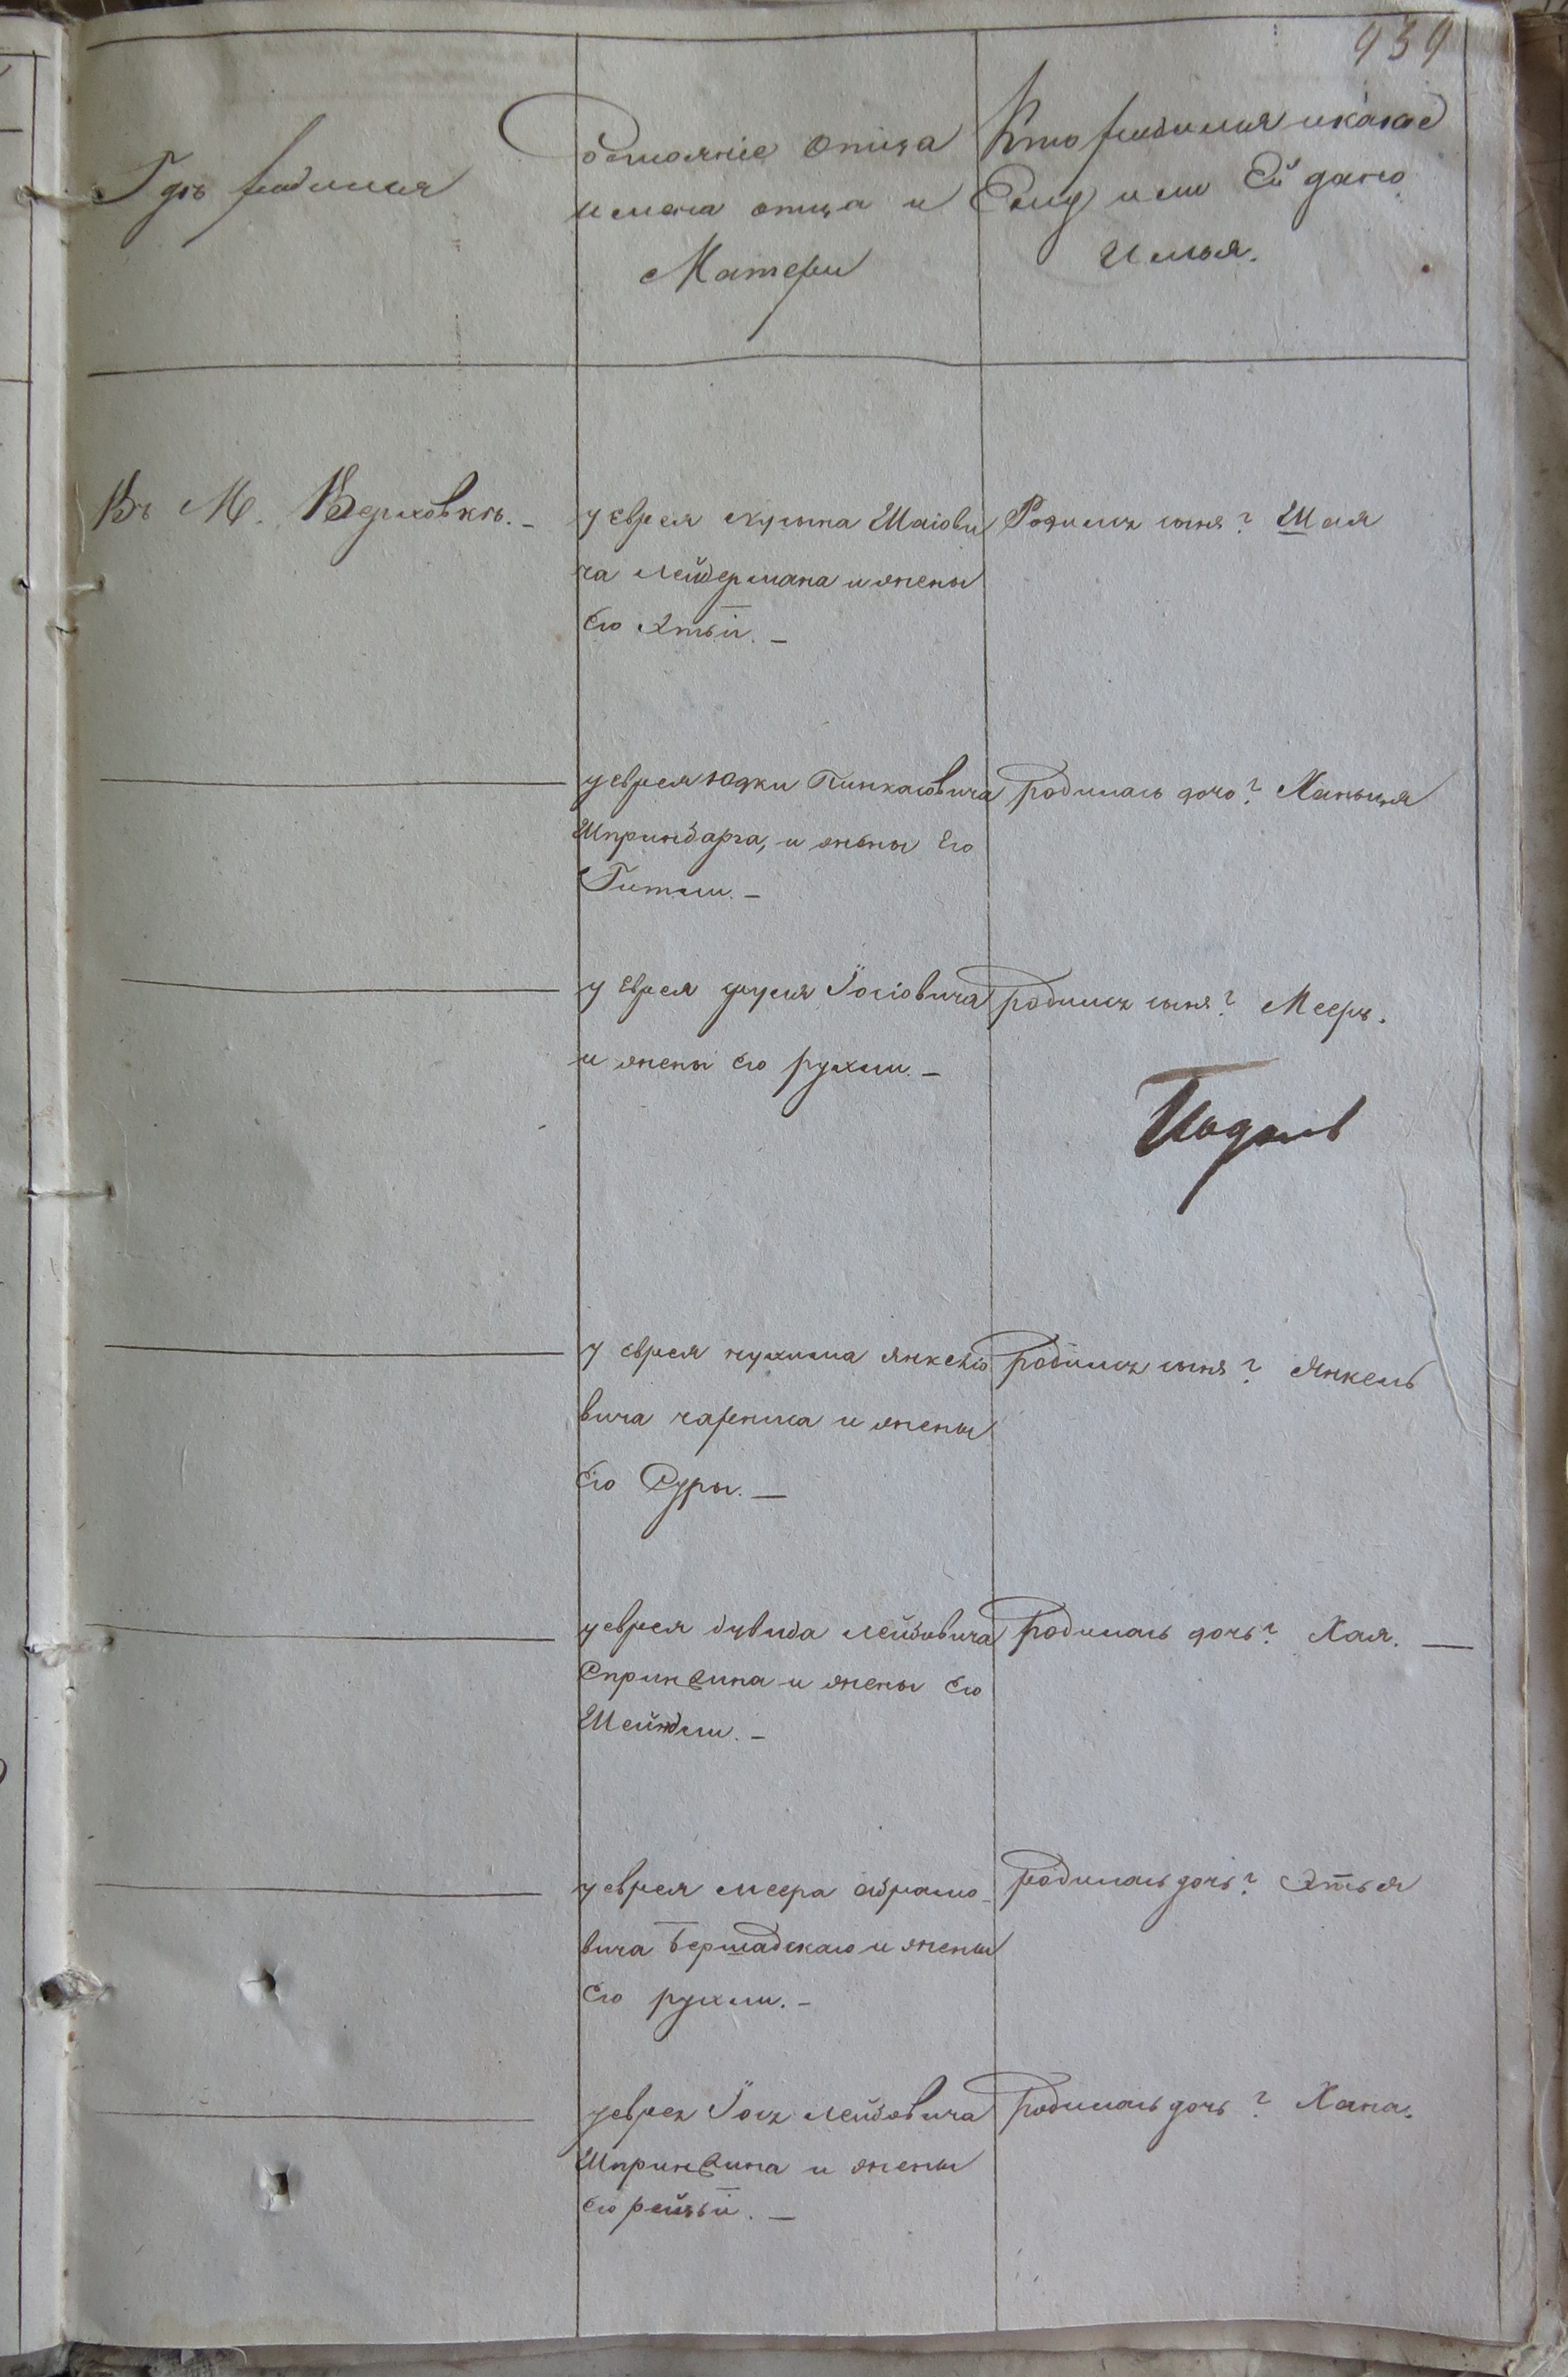 939
Где родился
Состояніе отца
имена отца и
Матери
Кто родился и какое
Ему или Ей дано
Имья.
Въ М. Вериховкѣ. –
у еврея Шаіови
ча лейдермана и жены
Его Этьи. –
Родился сынъ? Шая
у еврея Юдки Пинкасовича
Шпринбарга, и жены Его
Гитли. –
родилась дочь? Ханьця
у Еврея Іосіовича
и жены Его рухли. –
родился сынъ? Мееръ.
у еврея нухима янкеліо
вича и жены
Его Суры. –
родился сынъ? Янкель
у еврея дувида лейбовича
Спринсина и жены Его
Шейндли. –
Родилась дочь? Хая. –
у еврея меера абрамо
вича Бершадскаго и жены
Его рухли. –
родилась дочь? Этья
у еврея Іося лейбовича
Шпринсина и жены
Его рейзьи. –
родилась дочь? Хана.